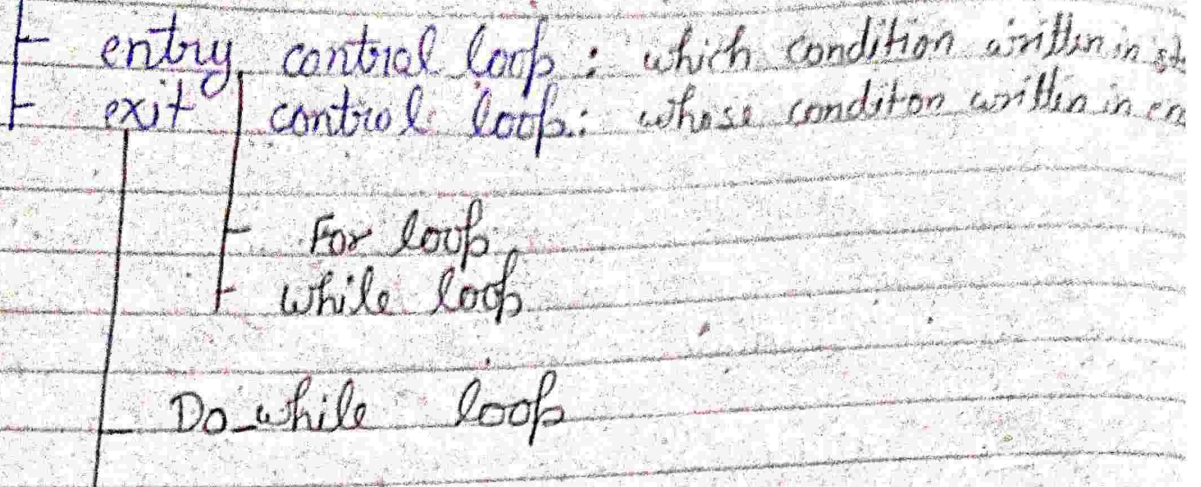 entry control loop : which condition written in st
exit control loop : whose conditon written in en
For loop
while loop
Do_while loop